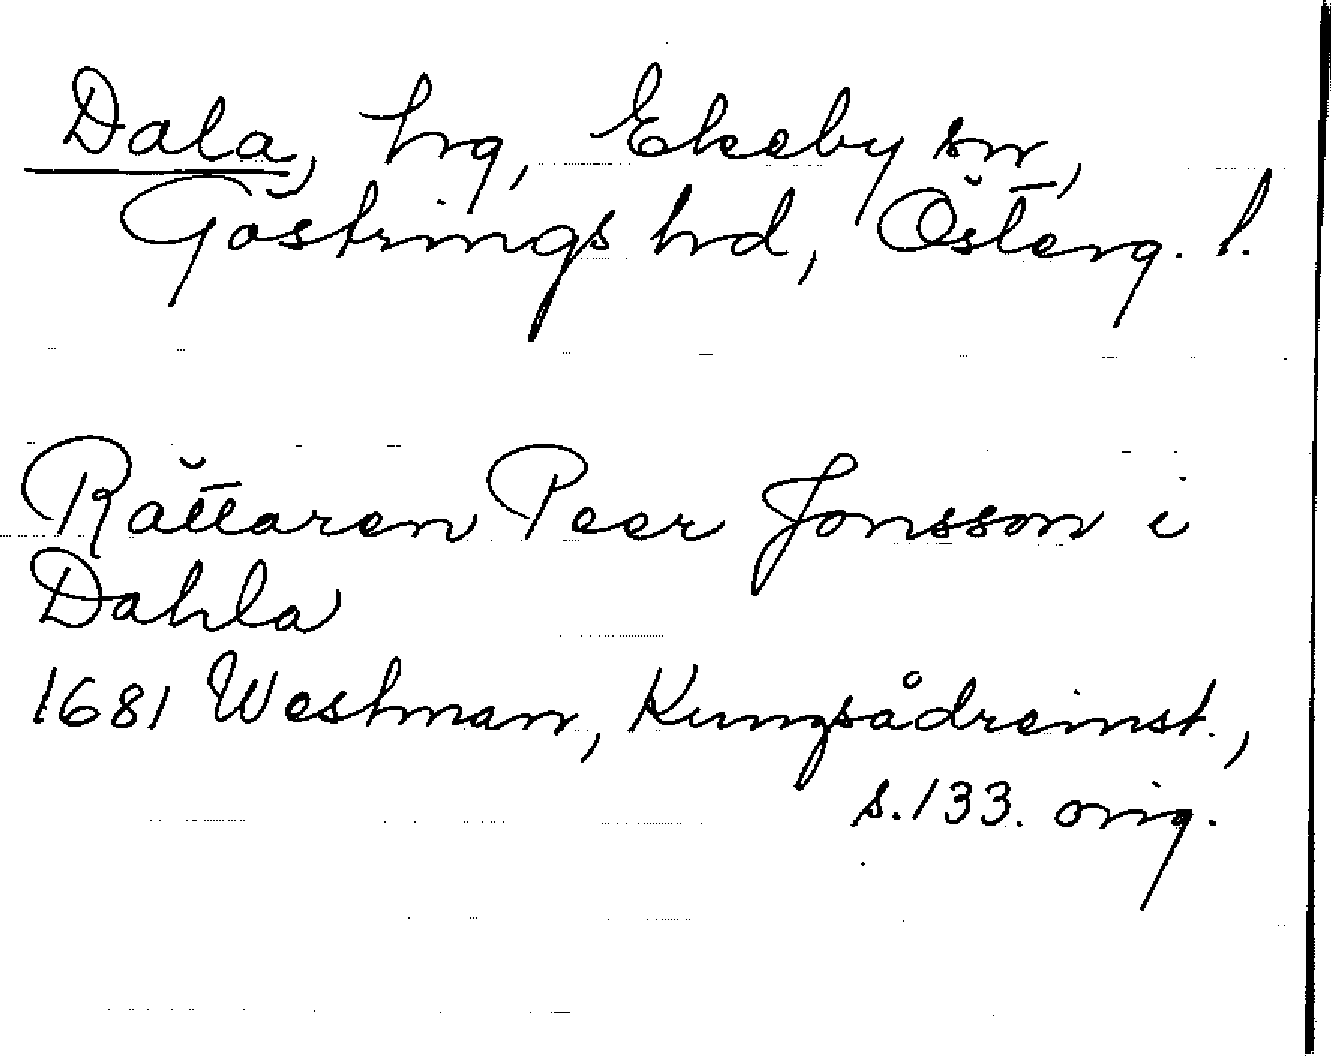 Dala, hg, Ekeby sn,
Göstrings hrd, Österg. l.
Rättaren Peer Jonsson i
Dahla
1681 Westman, Kungsådreinst.,
s. 133. orig.